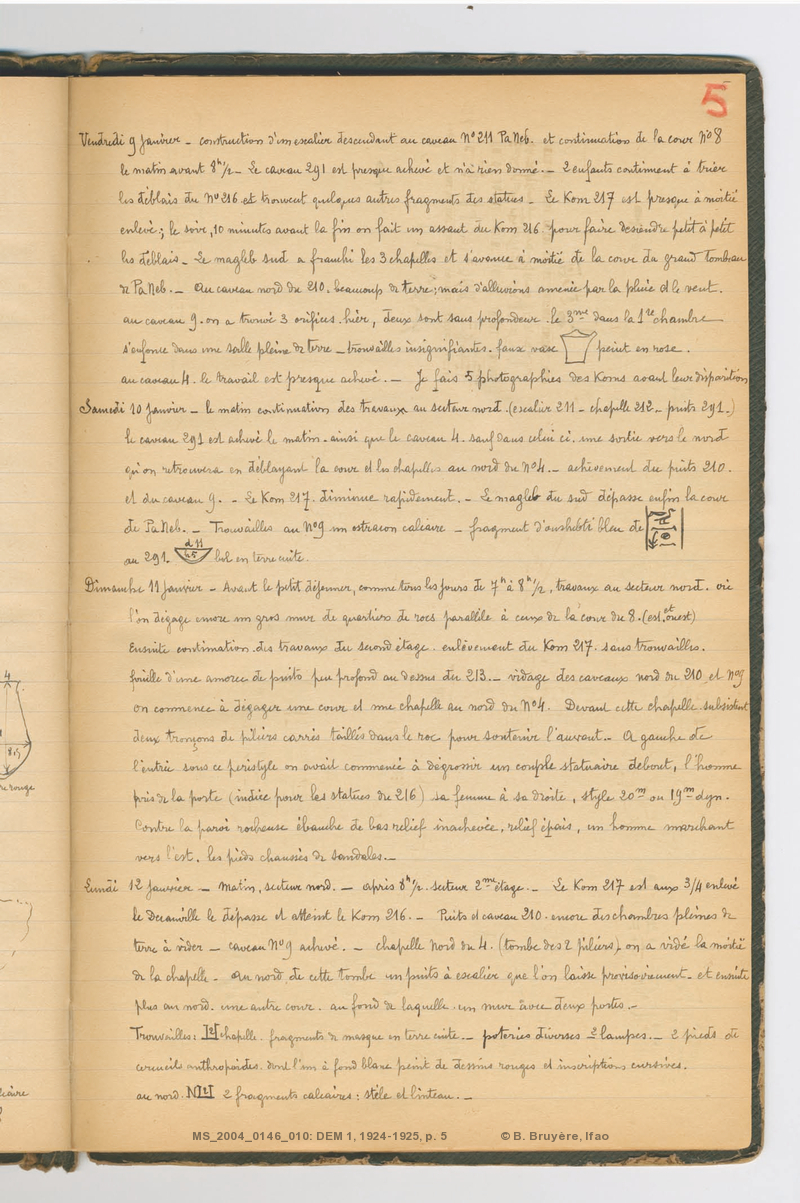 5
Vendredi 9 Janvier - construction d'un escalier descendant au caveau N° 211 Pa Neb. et continuation de la cour N° 8
le matin avant 8h/2 - Le caveau 291 est presque achevé et n'a rien donné. - 2 enfants continuent à trier
les déblais du N° 216 et trouvent quelques autres fragments des statues - Le Kom 217 est presque à moitié
enlevé; le soir, 10 minutes avant la fin on fait un assaut du Kom 216 pour faire descendre petit à petit
les déblais - Le magleb sud a franchi les 3 chapelles et s'avance à moitié de la cour du grand tombeau
de Pa Neb. - Au caveau nord du 210. beaucoup de terre; mais d'alluvions amenée par la pluie et le vent.
au caveau 9. on a trouvé 3 orifices. hier, deux sont sans profondeur. le 3me dans la 1re chambre
s'enfonce dans une salle pleine de terre - trouvailles insignifiantes. faux vase peint en rose.
au caveau 4. le travail est presque achevé. - Je fais 5 photographies des Koms avant leur disparition
Samedi 10 Janvier - le matin continuation des travaux au secteur nord. (escalier 211 - chapelle 212 - puits 291.)
le caveau 291 est achevé le matin. ainsi que le caveau 4. sauf dans celui ci. une sortie vers le nord
qu'on retrouvera en déblayant la cour et les chapelles au nord du N° 4. - achèvement du puits 210.
et du caveau 9. - Le Kom 217. diminue rapidement. - Le magleb du sud dépasse enfin la cour
de Pa Neb. - Trouvailles au N° 9 un ostracon calcaire - fragment d'oushebti bleu de
au 291. d 11 4.5 bol en terre cuite.
Dimanche 11 Janvier - Avant le petit déjeuner, comme tous les jours de 7h à 8h/2, travaux au secteur nord. où
l'on dégage encore un gros mur de quartiers de rocs parallèle à ceux de la cour du 8. (est et ouest)
Ensuite continuation des travaux du second étage. enlèvement du Kom 217. sans trouvailles.
fouille d'une amorce de puits peu profond au dessus du 213. - vidage des caveaux nord du 210 et N° 9
on commence à dégager une cour et une chapelle au nord du N° 4. Devant cette chapelle subsistent
deux tronçons de piliers carrés taillés dans le roc pour soutenir l'auvent. - A gauche de
l'entrée sous ce peristyle on avait commencé à dégrossir un couple statuaire debout, l'homme
près de la porte (indice pour les statues du 216) sa femme à sa droite, style 20me ou 19me dyn.
Contre la paroi rocheuse ébauche de bas relief inachevée, relief épais, un homme marchant
vers l'est, les pieds chaussés de sandales. -
Lundi 12 Janvier - Matin, secteur nord. - après 8h/2. secteur 2me étage. - Le Kom 217 est aux 3/4 enlevé
le Decauville le dépasse et atteint le Kom 216. - Puits et caveau 210. encore des chambres pleines de
terre à vider - caveau N° 9 achevé. - chapelle Nord du 4. (tombe des 2 piliers) on a vidé la moitié
de la chapelle. Au nord de cette tombe un puits à escalier que l'on laisse provisoirement. et ensuite
plus au nord. une autre cour. au fond de laquelle. un mur avec deux portes. -
Trouvailles: chapelle. fragments de masque en terre cuite. - poteries diverses - 2 lampes. - 2 pieds de
cercueils anthropoïdes. dont l'un à fond blanc peint de dessins rouges et inscriptions cursives.
au nord. 2 fragments calcaires: stèle et linteau. -
4
8,5
re rouge
lcaire
MS_2004_0146_010: DEM 1, 1924-1925, p. 5 © B. Bruyère, Ifao